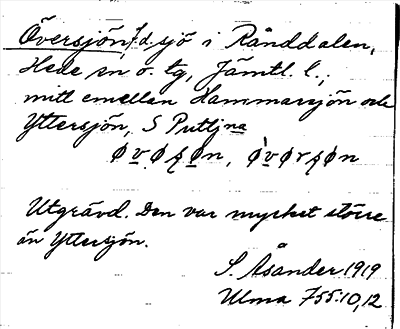 Översjön, f.d. sjö i Rånddalen,
Hede sn o. tg, Jämtl. l.;
mitt emellan Hammarsjön och
Yttersjön, S Puttjna
øvøʂøn, øvørʂøn
Utgrävd. Den var mycket större
än Yttersjön.
S. Åsander 1919
Ulma 755:10,12